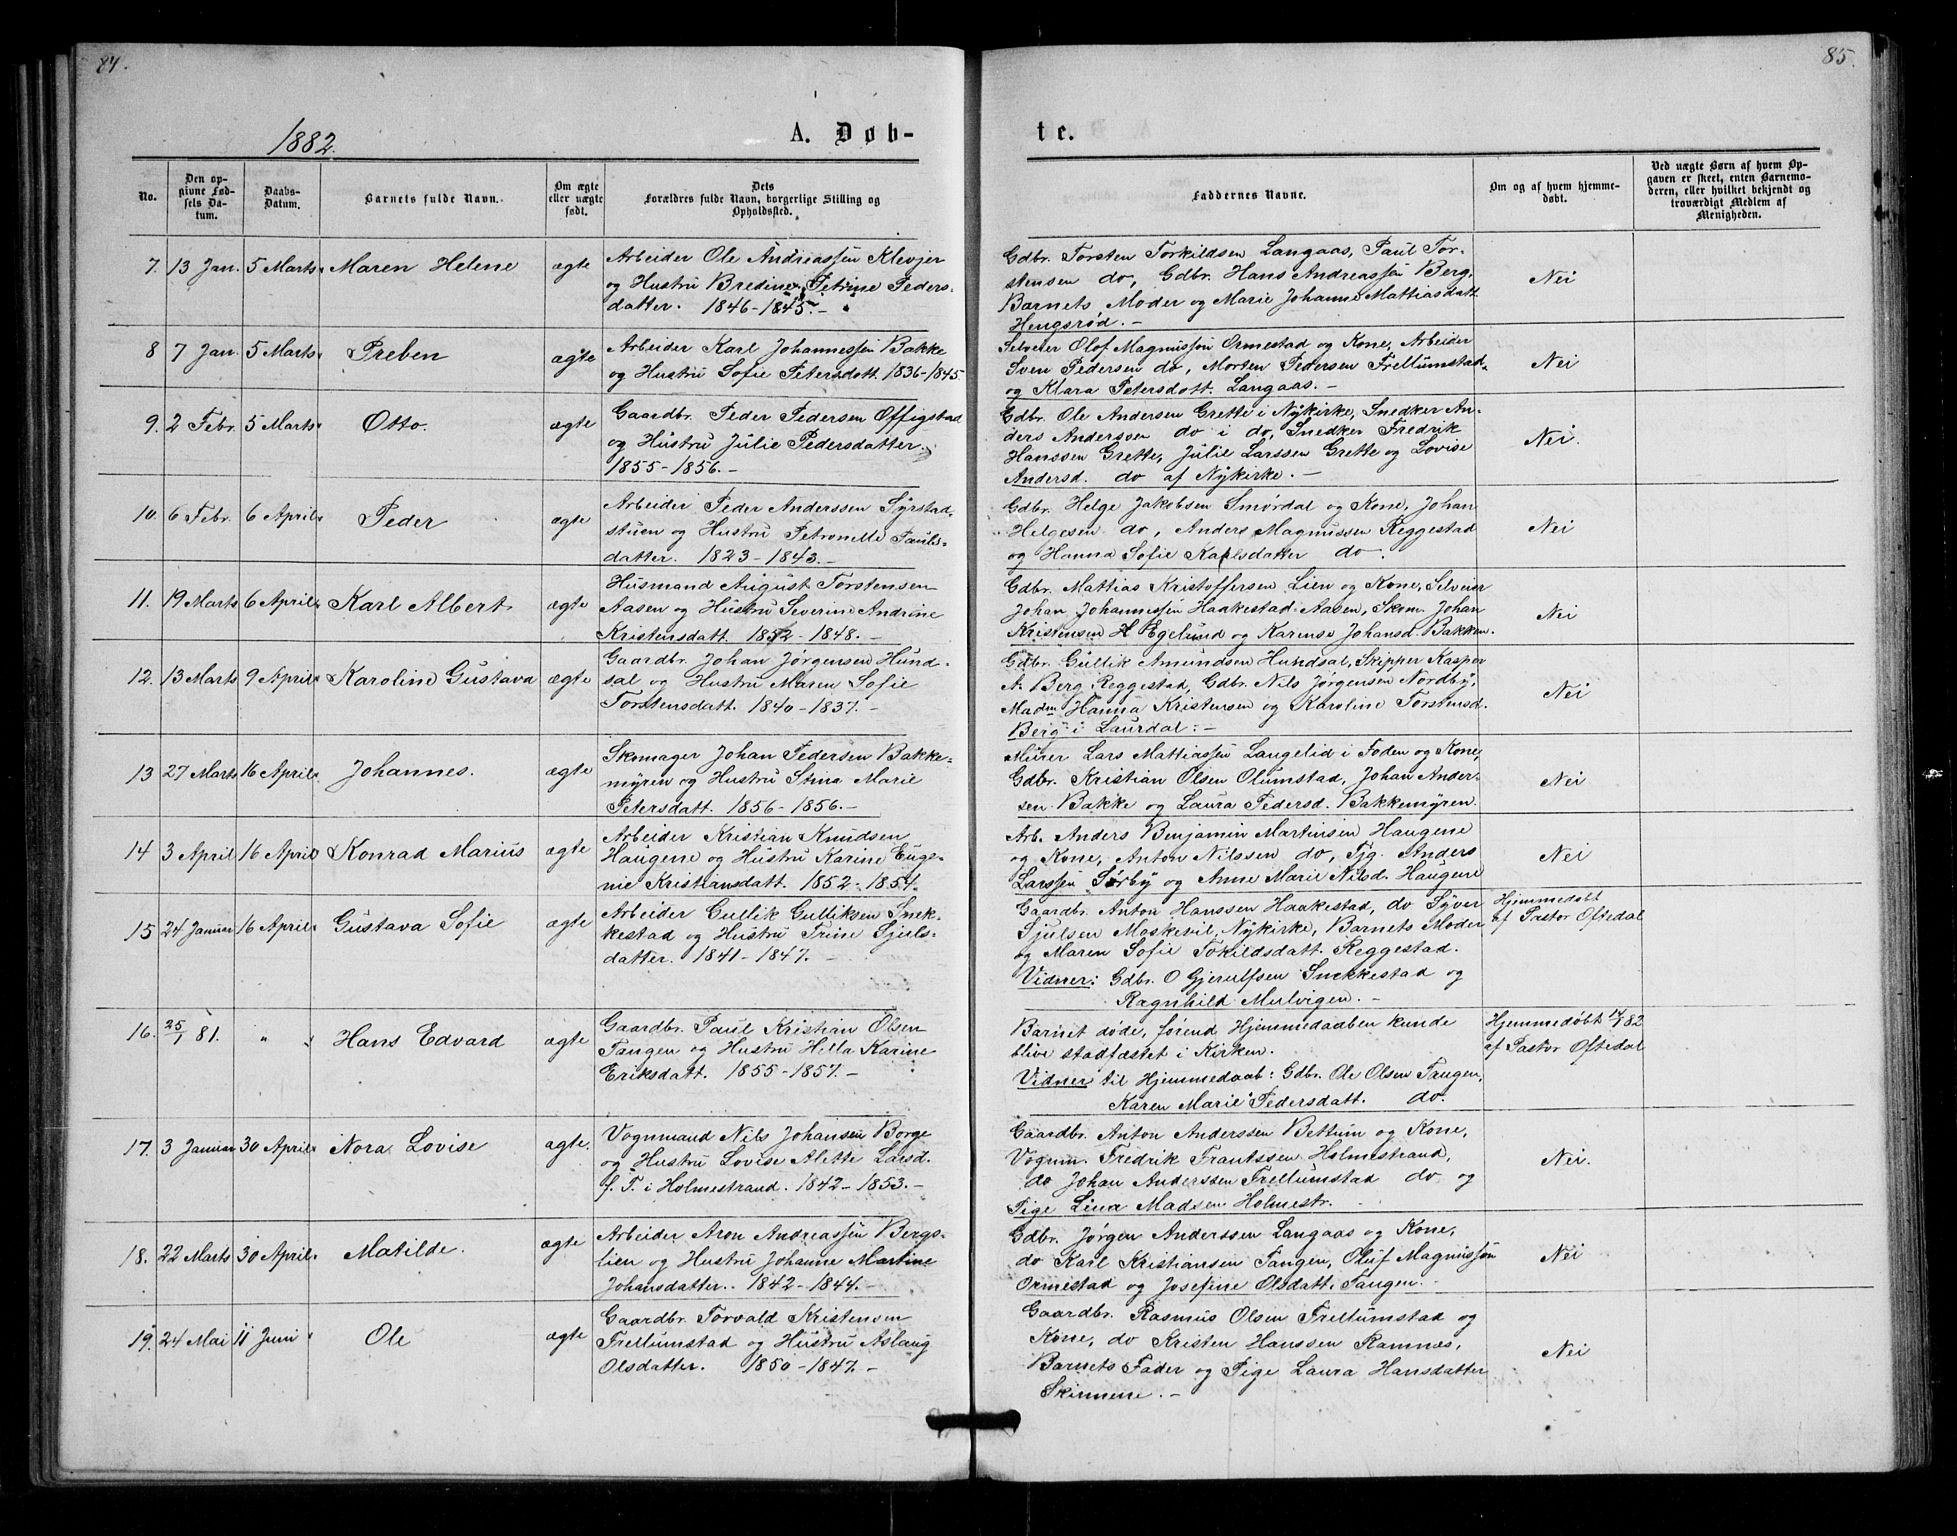 84.
85.
1882.
A. Døb-
te.
No.
Den op-
givne Fød-
sels Da-
tum.
Daabs-
Datum.
Barnets fulde Navn.
Om ægte
eller uægte
født.
Dets
Forældres fulde Navn, borgerlige Stilling og
Opholdssted.
Faddernes Navne.
Om og af hvem hjemme-
døbt.
Ved uægte Børn af hvem Op-
gaven er skeet, enten Barnemo-
deren, eller hvilket bekjendt og
troværdigt Medlem af
Menigheden.
7. 13 Jan. 5 Marts Maren Helene ægte
Arbeider Ole Andreassen Klevjer
og Hustru Bredine Petrine Peders-
datter. 1846-1845.-
Gdbr. Torsten Torkildsen Langaas, Paul Tor-
stensen do, Gdbr. Hans Andreassen Berg,
Barnets Moder og Marie Johanne Mattiasdatt
Hengsrød.-
Nei
8 7 Jan. 5 Marts Preben ægte
Arbeider Karl Johannessen Bakke
og Hustru Sofie Petersdatt. 1836-1845.
Selveier Olof Magnussen Ormestad og Kone, Arbeider
Sven Pedersen do, Morten Pedersen Frellumstad
og Klara Petersdatt Langaas.-
Nei
9. 2 Febr. 5 Marts Otto. ægte
Gaardbr. Peder Pedersen Offigstad
og Hustru Julie Pedersdatter.
1855-1856.-
Gdbr. Ole Andersen Grette i Nykirke, Snedker An-
ders Anderssen do i do, Snedker Fredrik
Hanssen Grette, Julie Larssen Grette og Lovise
Andersd. do af Nykirke.-
Nei.
10. 6 Febr. 6 April Peder ægte
Arbeider Peder Anderssen Syrstad-
stuen og Hustru Petronelle Pauls-
datter. 1823-1843.-
Gdbr. Helge Jakobsen Smørdal og Kone, Johan
Helgesen do, Anders Magnussen Reggestad
og Hanna Sofie Karlsdatter do.
Nei
11. 19 Marts 6 April Karl Albert ægte
Husmand August Torstensen
Aasen og Hustru Severine Andrine
Kristensdatt. 1852-1848.-
Gdbr. Mattias Kristoffersen Lien og Kone, Selveier
Johan Johannessen Haakestad-Aasen, Skom. Johan
Kristensen H Egelund og Karense Johansd. Bakken.
Nei
12. 13 Marts 9 April Karoline Gustava ægte
Gaardbr. Johan Jørgensen Hund-
sal og Hustru Maren Sofie
Torstensdatt. 1840-1837.-
Gdbr. Gullik Amundsen Hundsal, Skipper Kasper
A. Berg Reggestad, Gdbr. Nils Jørgensen Nordby,
Madm Hanna Kristensen og Karoline Torstensd.
Berg i Laurdal.-
Nei
13 27 Marts 16 April Johannes. ægte
Skomager Johan Pedersen Bakke-
myren og Hustru Stina Marie
Petersdatt. 1856-1856.-
Murer Lars Mattiassen Langelid i Foden og Kone,
Gdbr. Kristian Olsen Olumstad, Johan Ander-
sen Bakke og Laura Pedersd. Bakkemyren.
Nei
14 3 April 16 April Konrad Marius ægte
Arbeider Kristian Knudsen
Haugene og Hustru Karine Euge-
nie Kristiansdatt. 1852-1854.
Arb. Anders Benjamin Martinsen Haugene
og Kone, Anton Nilssen do, Tjg. Anders
Larssen Sørby og Anne Marie Nilsd. Haugene
Nei
15 24 Januar 16 April Gustava Sofie ægte
Arbeider Gullik Gulliksen Snek-
kestad og Hustru Trine Sjuls-
datter. 1841-1847.-
Gaardbr. Anton Hanssen Haakestad, do Syver
Sjulsen Moskevil, Nykirke, Barnets Moder
og Maren Sofie Tokildsdatt Reggestad.
Vidner: Gdbr. O Gjerulfsen Snekkestad og
Ragnhild Mulvigen.-
Hjemmedøbt
af Pastor Oftedal
16. 25/1 81. " " Hans Edvard ægte
Gaardbr. Paul Kristian Olsen
Tangen og Hustru Hella Karine
Eriksdatt. 1855-1857.-
Barnet døde, førend Hjemmedaaben kunde
blive stadfæstet i Kirken.
Vidner til Hjemmedaab: Gdbr. Ole Olsen Tangen,
Karen Marie Pedersdatt. do.
Hjemmedøbt 82
af Pastor Oftedal
17. 3 Januar 30 April Nora Lovise ægte.
Vognmand Nils Johansen Borge
og Hustru Lovise Alette Larsd.
f. T. i Holmestrand. 1842-1853.-
Gaardbr. Anton Anderssen Bettum og Kone,
Vognm. Fredrik Frantssen Holmestrand,
do Johan Anderssen Frellumstad do og
Pige Lina Madsen Holmestr.
Nei.
18. 22 Marts 30 April Matilde. ægte
Arbeider Aron Andreassen Bergs-
lien og Hustru Johanne Martine
Johansdatter. 1842-1844.-
Gdbr. Jørgen Anderssen Langaas og Kone,
do Karl Kristiansen Tangen, Oluf Magnussen
Ormestad og Josefine Olsdatt. Tangen.
Nei
19. 24 Mai 11 Juni Ole ægte
Gaardbr. Torvald Kristensen
Frellumstad og Hustru Aslaug
Olsdatter. 1850-1847.-
Gaardbr. Rasmus Olsen Frellumstad og
Kone, do Kristen Hanssen Ramnæs,
Barnets Fader og Pige Laura Hansdatter
Skinnene.-
Nei